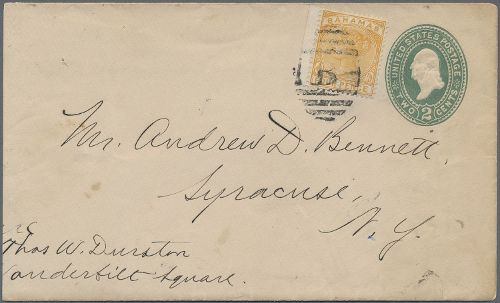 BAHAMAS
B
PENCE
UNITED STATES POSTAGE
TWO 2 CENTS
Mr. Andrew D. Bennett,
Syracuse,
N. Y.
Thos W. Durston
Vanderbilt Square.